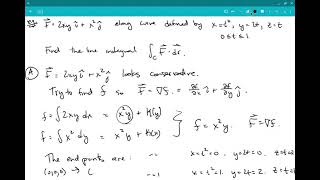 F⃗ = 2xy î + x² ĵ along curve defined by x=t², y=2t, z=t
0≤t≤1.
Find the line integral ∫_C F⃗·dr⃗.
Ⓐ F⃗ = 2xy î + x² ĵ looks conservative.
Try to find f so F⃗ = ∇f = ∂f/∂x î + ∂f/∂y ĵ.
f = ∫ 2xy dx = x²y + K(y)
f = ∫ x² dy = x²y + K(x)
} f = x²y. F⃗ = ∇f.
The end points are: x=t²=0, y=2t=0, z=t=
(0,0,0) → ( x=t²=1, y=2t=2, z=t